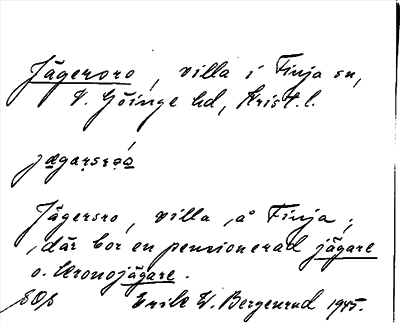 Jägersro, villa i Finja sn,
V. Göinge hd, Krist. l.
Jägersro, villa å Finja;
där bor en pensionerad jägare
o. kronojägare.
Erik W. Bergenrud 1945.